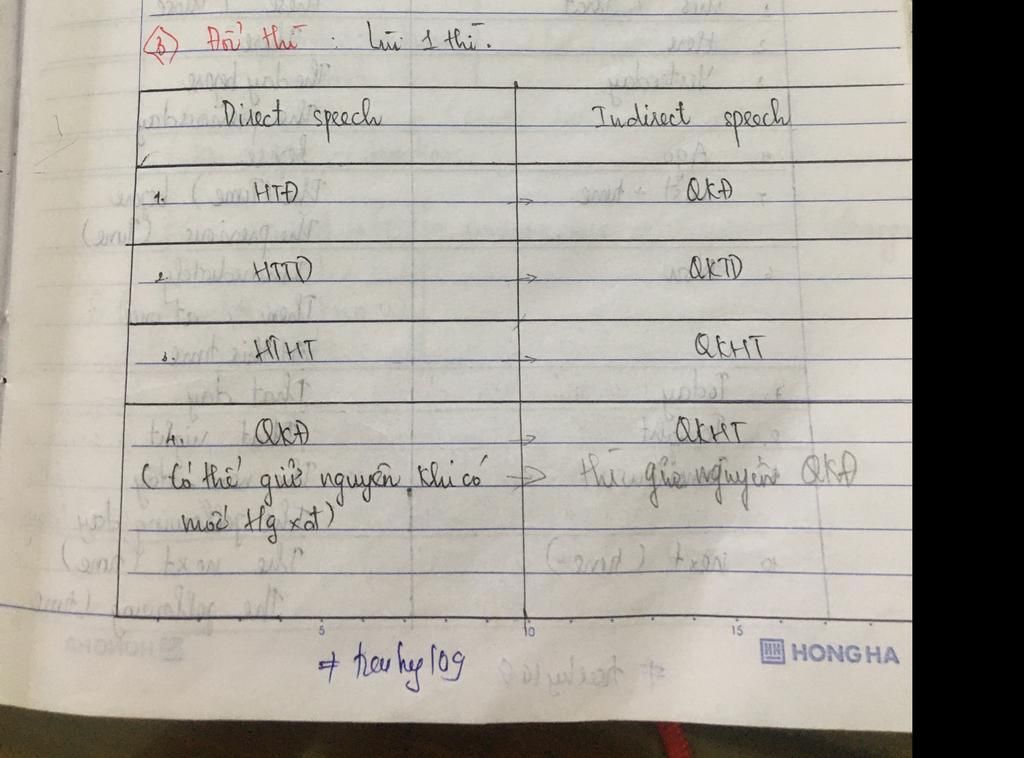 ③ Đổi thì : Lùi 1 thì.
Direct speech Indirect speech
1. HTĐ → QKĐ
2. HTTD → QKTD
3. HTHT → QKHT
4. QKĐ → QKHT
( Có thể giữ nguyên khi có → thì giữ nguyên QKĐ
mốc tg xđ )
5 10 15
HONG HA